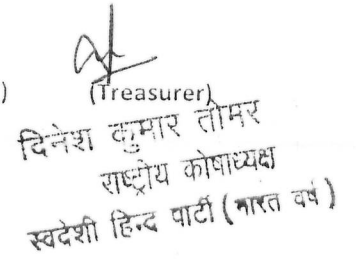 )
(Treasurer)
दिनेश कुमार तोमर
राष्ट्रीय कोषाध्यक्ष
स्वदेशी हिन्द पार्टी (भारत वर्ष)